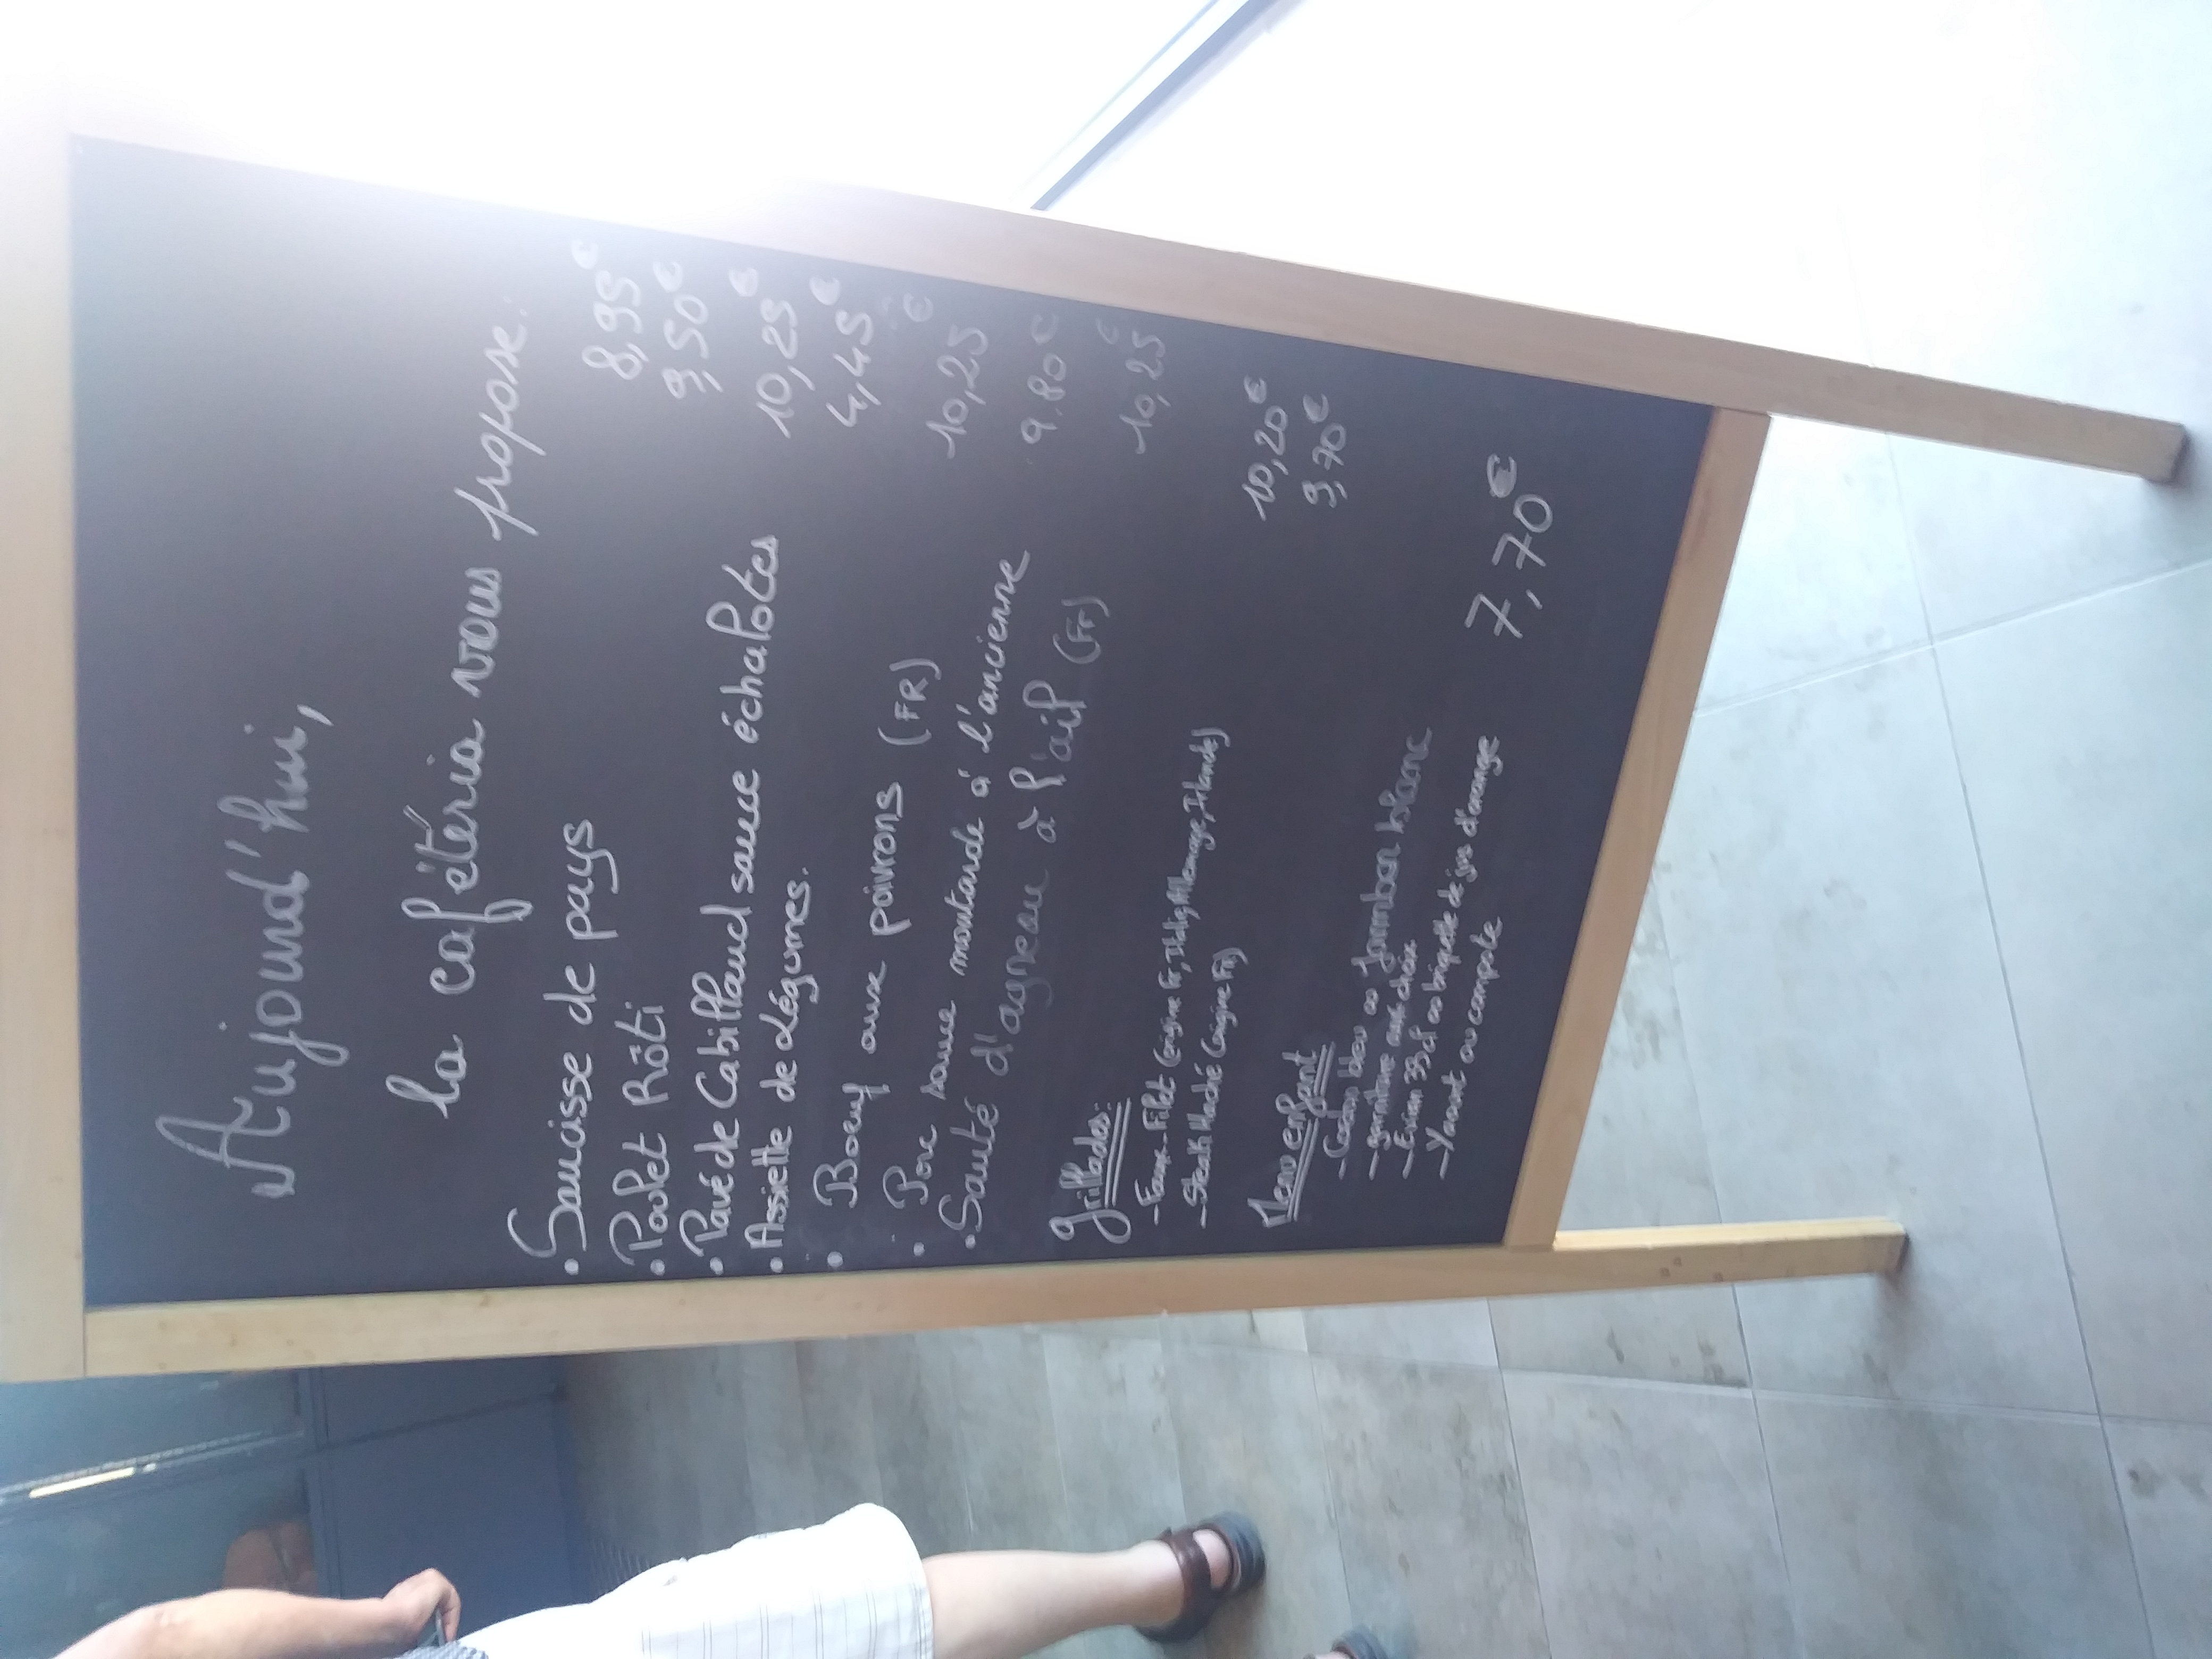 Aujourd'hui,
la cafétéria vous propose:
• Saucisse de pays 8,95€
• Poulet Rôti 9,50€
• Pavé de Cabillaud sauce échalotes 10,25€
• Assiette de légumes. 4,45€
• Boeuf aux poivrons (FR) 10,25€
• Porc sauce moutarde à l'ancienne 9.80€
• Sauté d'agneau à l'ail (Fr) 10,25€
Grillades:
- Faux-Filet (origine Fr, Italie, Allemagne, Irlande) 10,20€
- Steak Haché (origine Fr) 9,70€
Menu enfant
- Cordon bleu ou Jambon blanc
- garniture au choix
- Evian 33cl ou briquette de jus d'orange
- Yaourt ou compote
7,70€